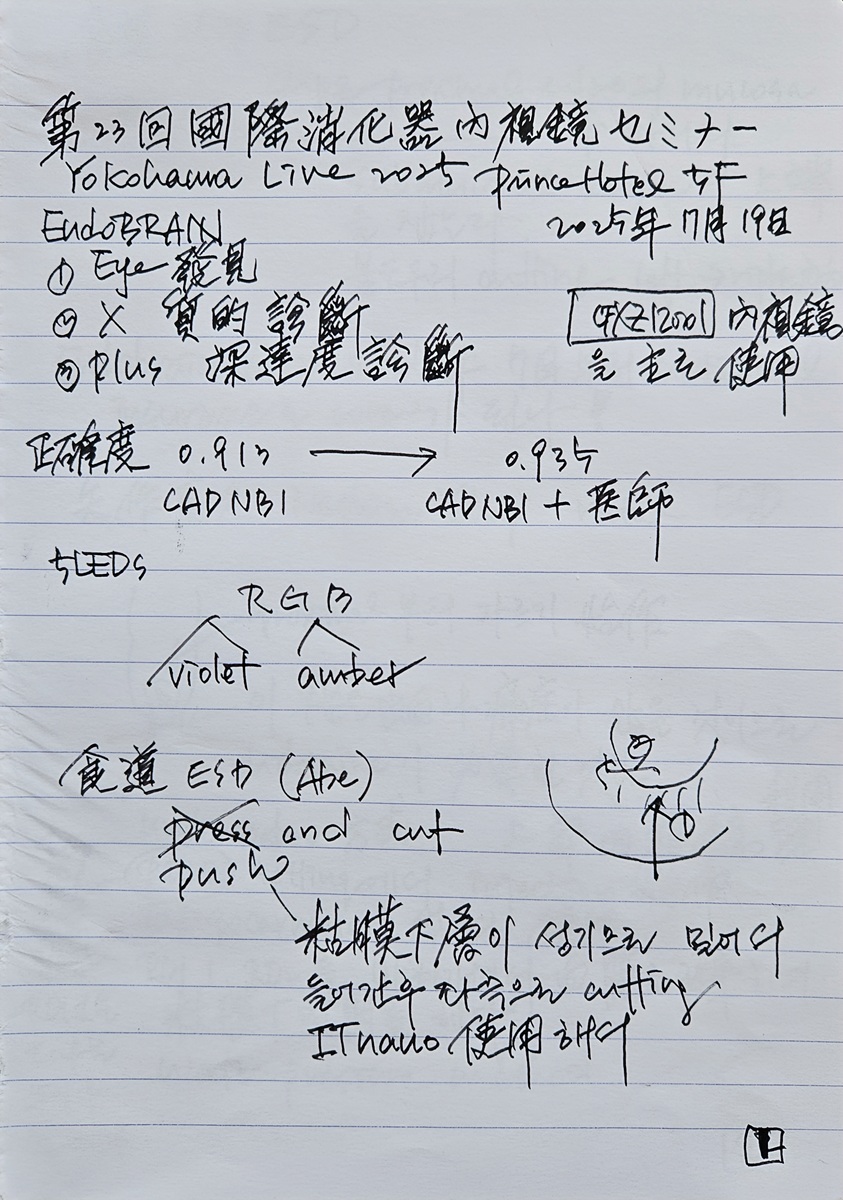 第23回 國際消化器內視鏡セミナー
Yokohama Live 2025 PrinceHotel 5F
2025年 7月 19日
EndoBRAIN
① Eye 發見
② X 質的 診斷
③ plus 深達度 診斷
CFXZ1200I 內視鏡
을 主로 使用
正確度 0.913 → 0.935
CADNBI CADNBI + 医師
5LEDs
R G B
violet amber
食道 ESD (Abe)
press and cut
push
粘膜下層이 성기므로 밀어서
들어간 후 좌측으로 cutting
ITnano 使用해서
② ①
1